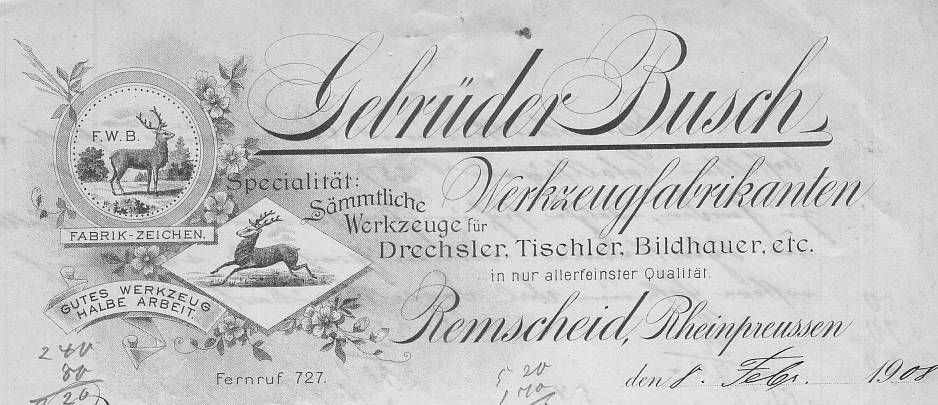 Gebrüder Busch
F.W.B.
FABRIK-ZEICHEN.
Specialität:
Sämmtliche
Werkzeuge für
Werkzeugfabrikanten
Drechsler, Tischler, Bildhauer, etc.
in nur allerfeinster Qualität.
GUTES WERKZEUG
HALBE ARBEIT.
Remscheid, Rheinpreussen
Fernruf 727.
den 8. Febr. 1908
240
80
5 20